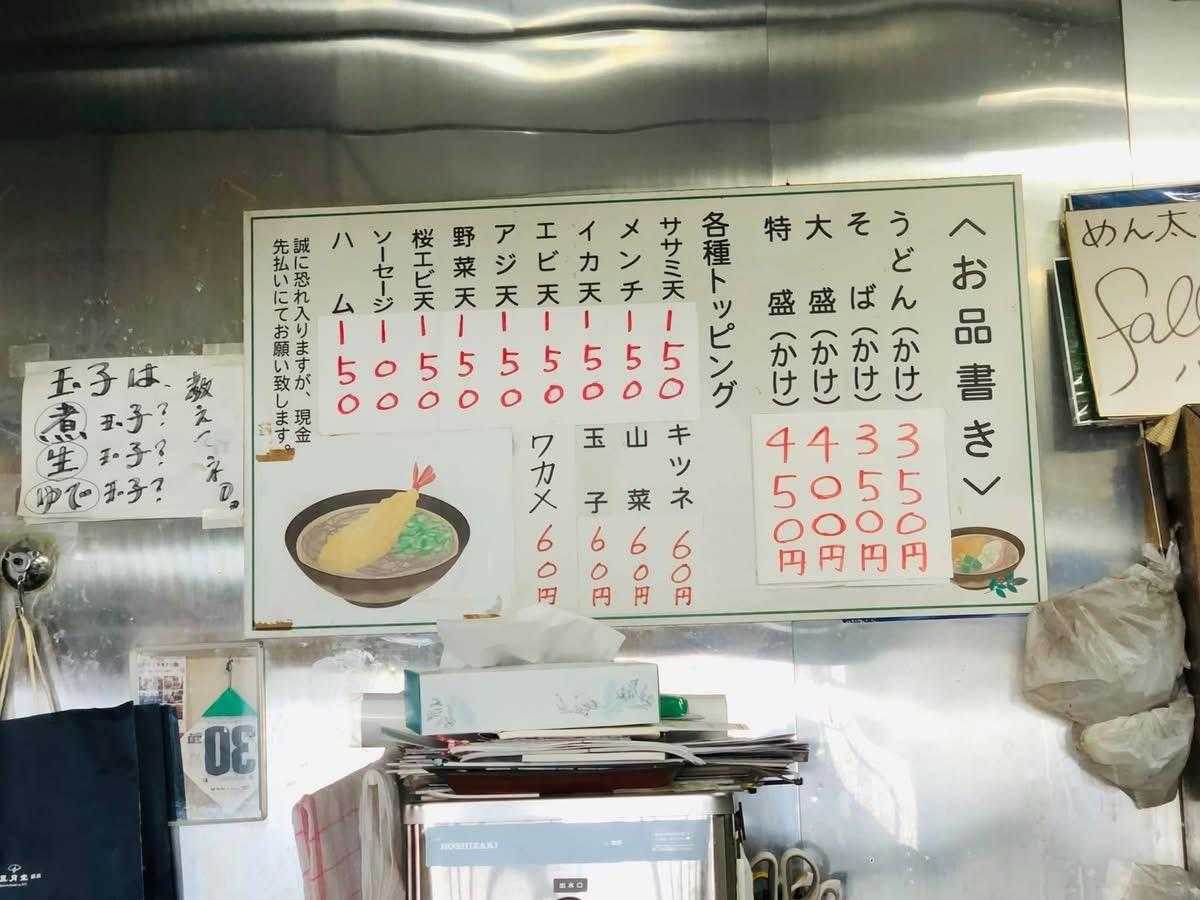 〈お品書き〉
うどん(かけ)350円
そば(かけ)350円
大盛(かけ)400円
特盛(かけ)450円
各種トッピング
ササミ天150
メンチ150
イカ天150
エビ天150
アジ天150
野菜天150
桜エビ天150
ソーセージ100
ハム150
キツネ60円
山菜60円
玉子60円
ワカメ60円
誠に恐れ入りますが、現金
先払いにてお願い致します。
玉子は、
煮玉子?
生玉子?
ゆで玉子?
教えてネ。
めん太
30
HOSHIZAKI
出水口